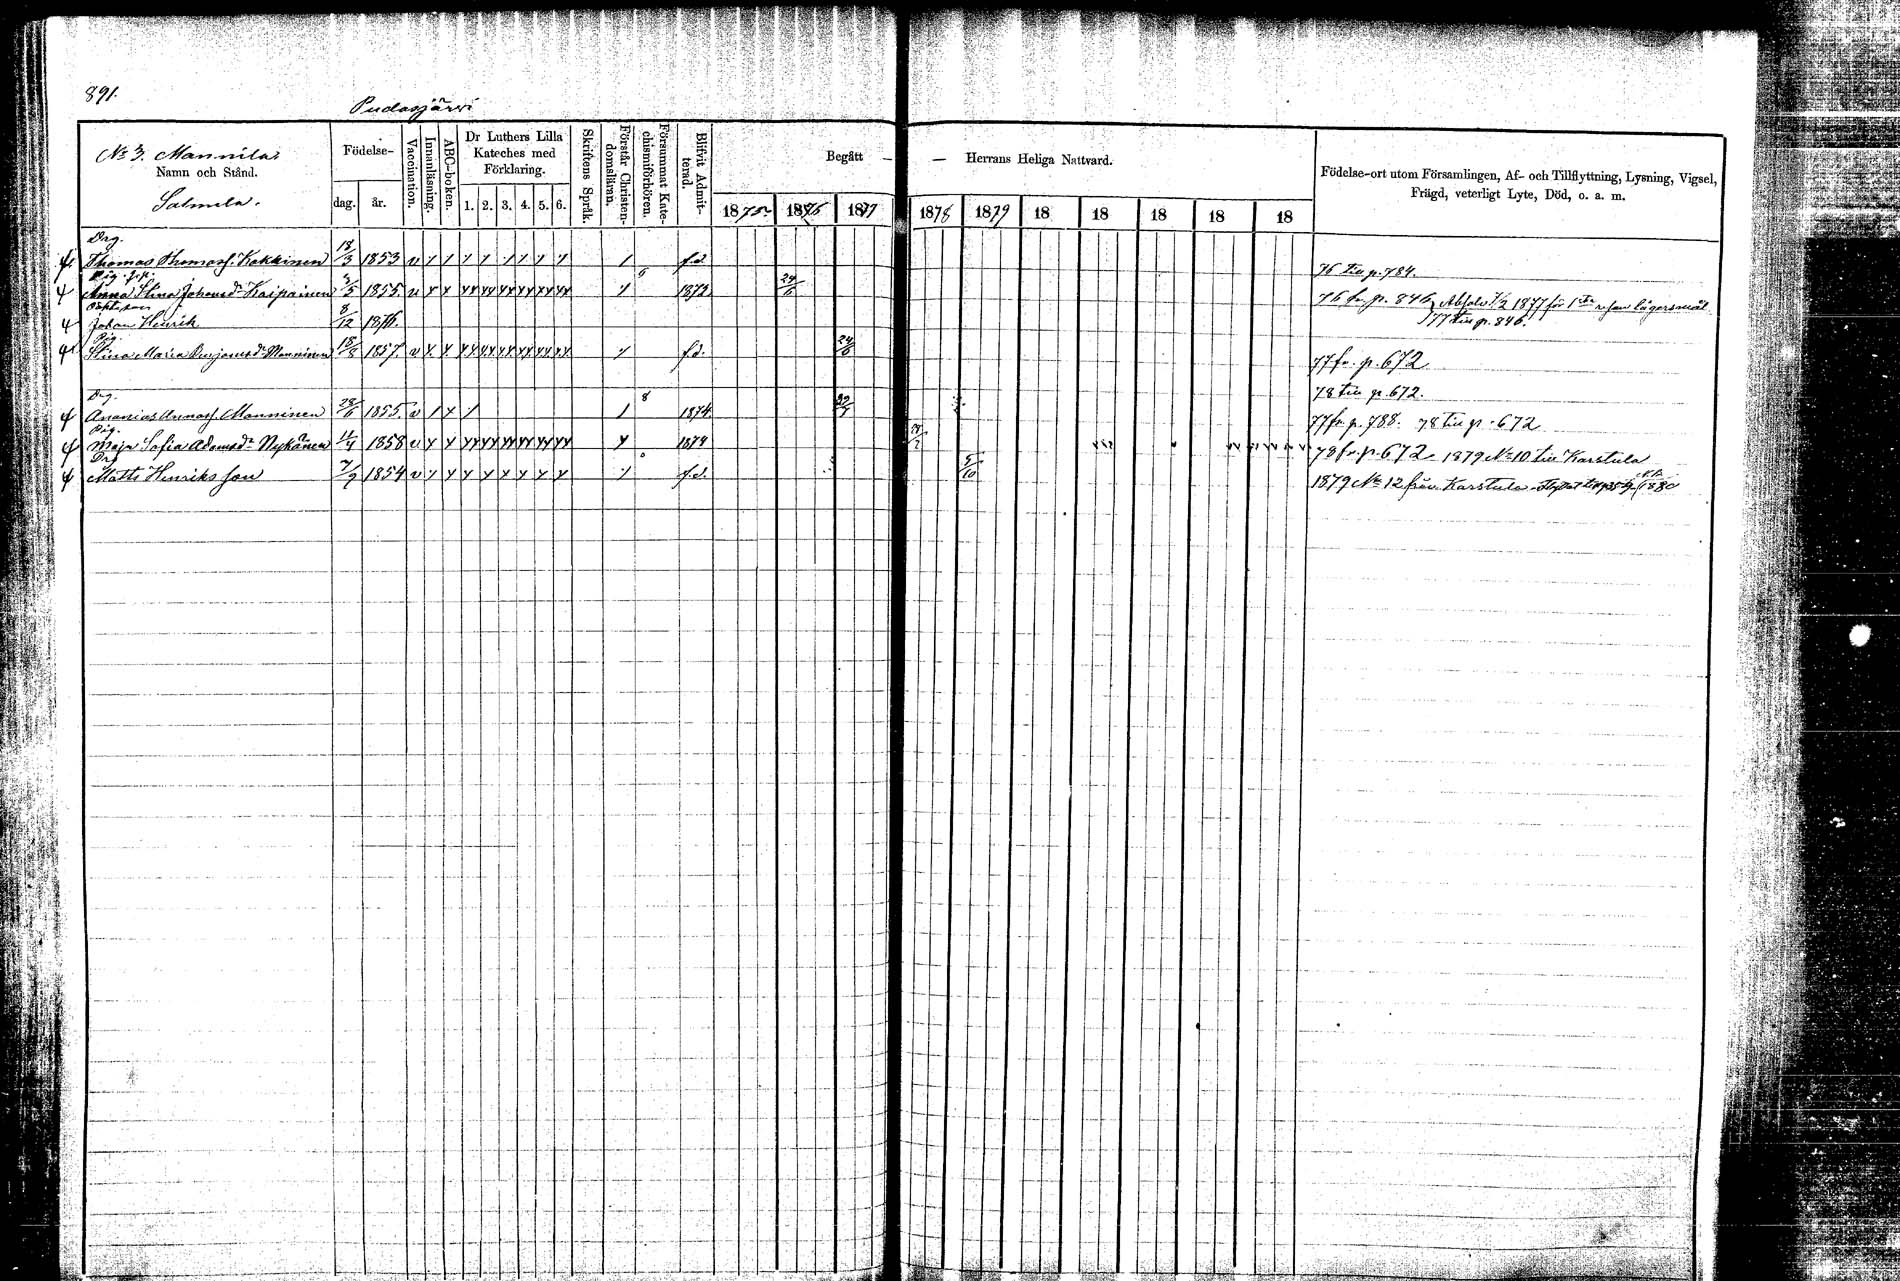 891.
Pudasjärvi
No 3. Mannila
Namn och Stånd.
Salmela.
Födelse-
dag. år.
Vaccination.
Innanläsning.
ABC-boken.
Dr Luthers Lilla
Kateches med
Förklaring.
1. 2. 3. 4. 5. 6.
Skriftens Språk.
Förstår Christen-
domsläran.
Försummat Kate-
chismiförhören.
Blifvit Admit-
terad.
Begått — — Herrans Heliga Nattvard.
1875 1876 1877 1878 1879 18 18 18 18 18
Födelse-ort utom Församlingen, Af- och Tillflyttning, Lysning, Vigsel,
Frägd, veterligt Lyte, Död, o. a. m.
Drg.
Thomas Thomass. Kokkinen 18/3 1853 v f.d. 76 till p. 784.
Pig.
Anna Stina Johansdr Kaipainen 1855. v 1873 24/6 76 fr. p. 846, Absolv 1/2 1877 för 1sta resan lägersmål.
Johan Henrik 8/12 1876. 77 till p. 846.
Pig.
Stina Maria Benjamsdr Manninen 18/8 1857. v f.d. 24/6 77 fr. p. 672
78 till p. 672.
Drg.
Ananias Annass. Manninen 28/6 1855. v 8 1874 77 fr p. 788. 78 till p. 672
Pig.
Maja Sofia Adamsdr Nykänen 1858 v 1874 78 fr. p. 672 1879 No 10 till Karstula
Drg
Matts Henriksson 7/9 1854 v f.d. 5/10 1879 No 12 från Karstula 1880